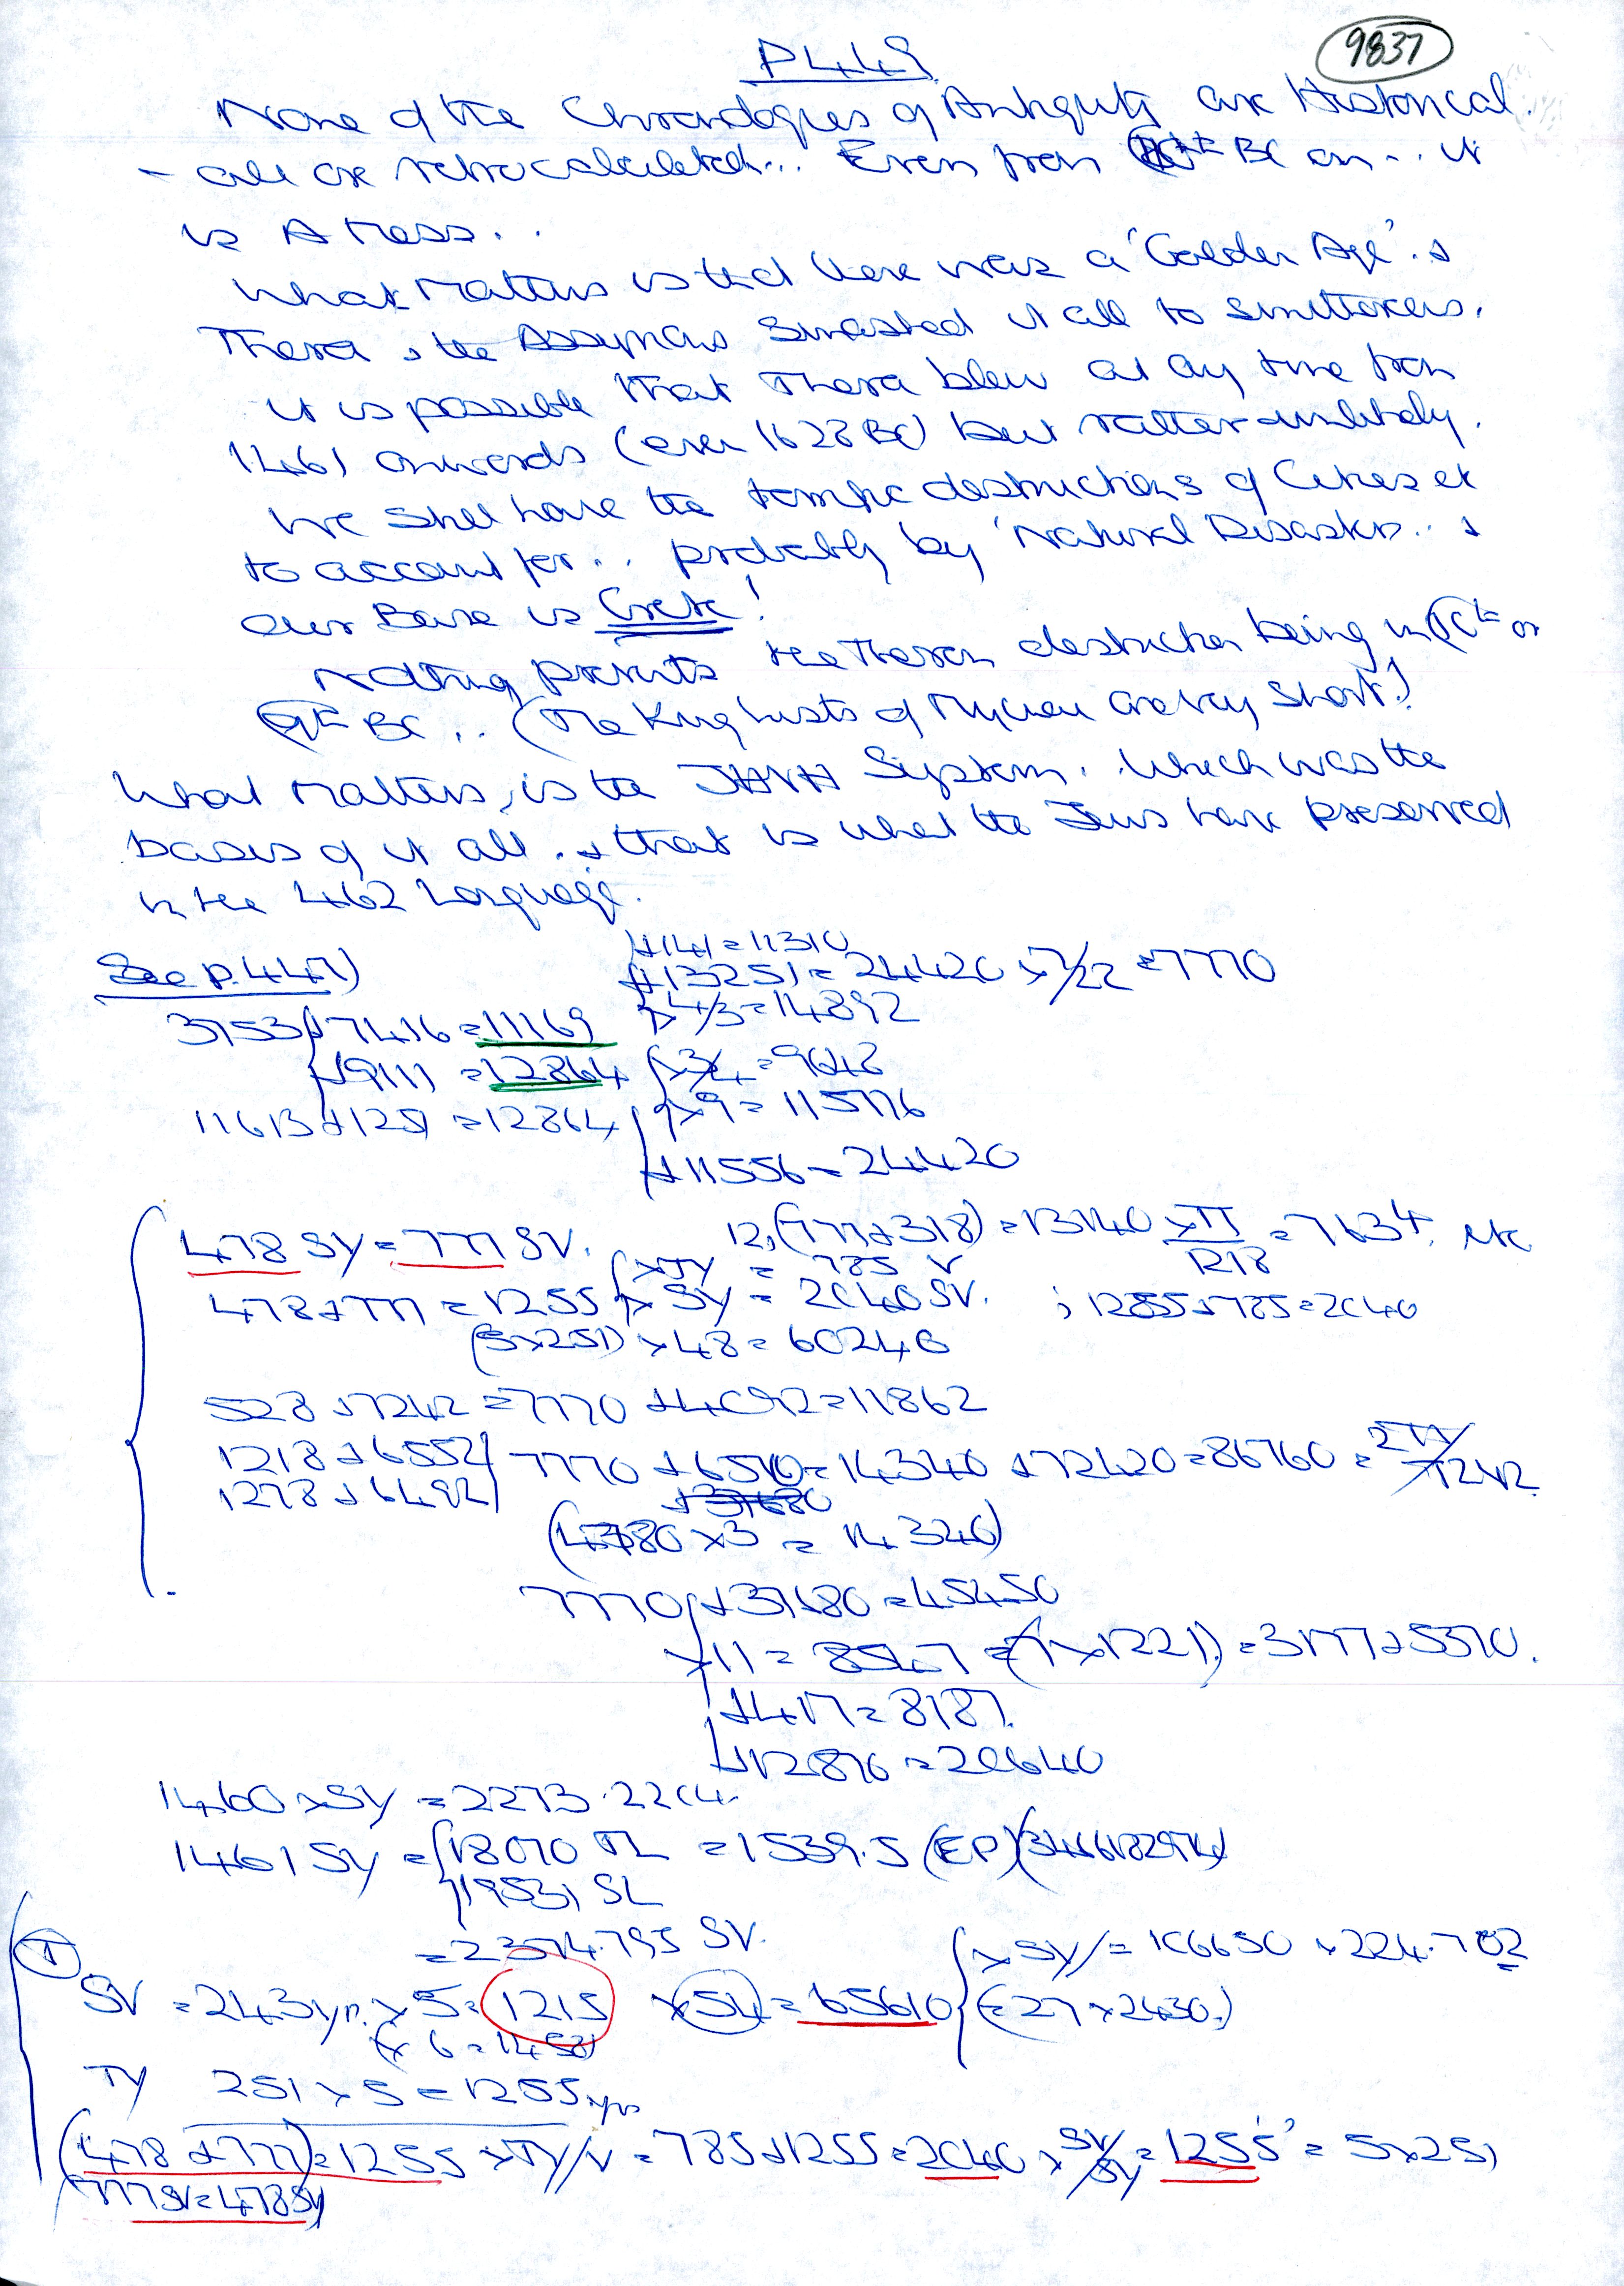 P449
9837
None of the Chronologies of Antiquity are Historical.
- all are retrocalculated... Even from BC on... it
is A Mess..
What Matters is that there was a 'Golden Age'. &
Thera & the Assyrians Smashed it all to smithereens.
it is possible that Thera blew at any time from
1461 onwards (even 1628 BC) but rather unlikely.
We shall have the terrific destructions of Cities et
to account for.. probably by 'Natural Disasters.. &
our Base is Crete!
Nothing prevents the Theran destruction being in or
9th BC .. (The King Lists of are very short!)
What Matters, is the JHVH System. Which was the
basis of it all. & that is what the Jews have preserved
in the 462 Language.
See p.447)
+141=11310
+13251=24420 x7/22=7770
x4/3=14892
3753 +7416=11169
+9111=12864 x3/4=9648
11613+1251=12864 x9=115776
+11556=24420
478 SY=777 SV. 12(777+318)=13140 xTT/1218=7634.
478+777=1255 xTY = 785 V
xSY = 2040 SV. ; 1255+785=2040
(5x251) x48=60240
528+7242=7770+4092=11862
1218+6552 7770+6570=14340+72420=86760=
1278+6492
(4780x3=14340)
7770 +37680=45450
x11=8547=(7x1221)=3177+5370.
+417=8187.
+12870=20640
1460xSY=2273.2204.
1461SY= 18070 TL =1539.5 (EP)
19531 SL
=2374.795 SV.
T
SV=243yr.x5=1215 x54=65610 xSY/=106650 x224.702
(=27x2430.)
(x6=1458)
TY 251x5=1255yrs
(478+777)=1255xTY/V=785+1255=2040xSV/SY=1255'=5x251
(777SV=478SY)